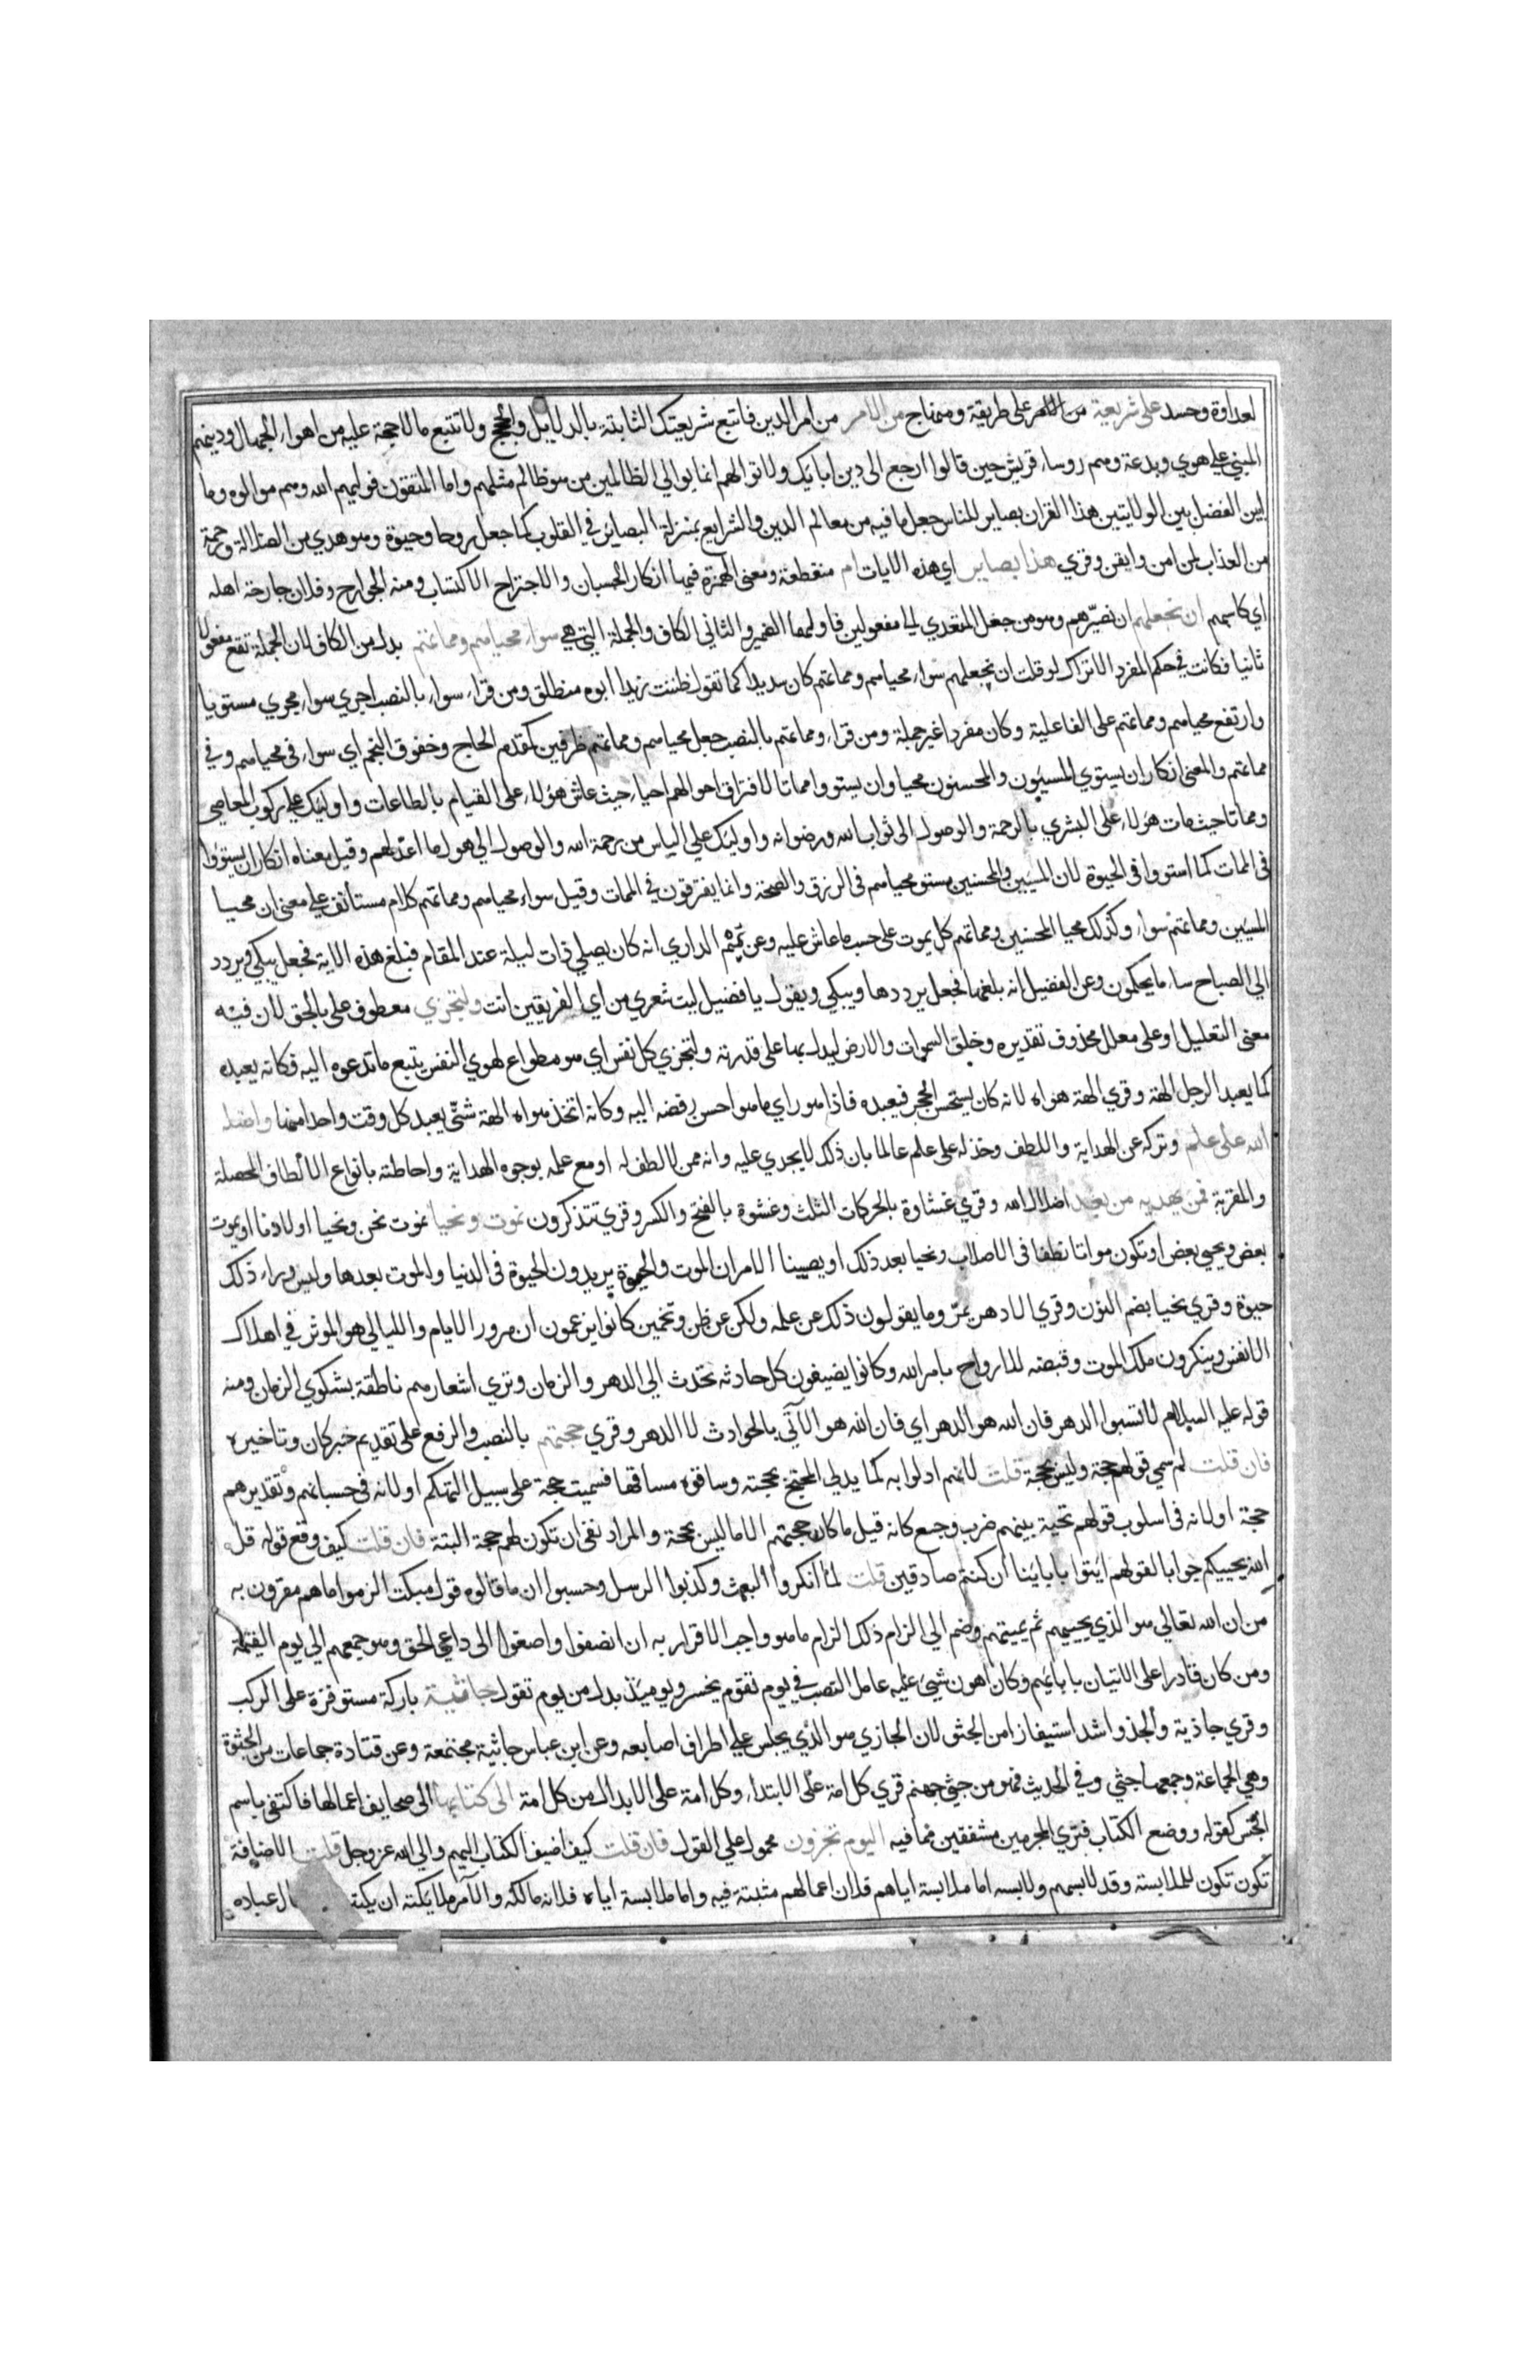 لعداوة وحسد على شريعة من الامر على طريقة ومنهاج من الامر من امر الدين فاتبع شريعتك الثابتة بالدلايل والحجج ولا تتبع ما لا حجة عليه من اهواء الجهال ودينهم
المبني علي هوي وبدعة وهم روساء قريش حين قالوا ارجع الى دين ابايك ولا توالهم انما يوالي الظالمين من هو ظالم مثلهم واما المتقون فوليهم الله وهم موالوه وما
ابين الفضل بين الولايتين هذا القران بصاير للناس جعل ما فيه من معالم الدين والشرايع بمنزلة البصاير في القلوب كما جعل روحا وحيوة وهو هدي من الضلالة ورحمة
من العذاب لمن امن وايقن وقري هذا بصاير اي هذه الايات ام منقطعة ومعنى الهمزة فيها انكار الحسبان والاجتراح الاكتساب ومنه الجوارح وفلان جارحة اهله
اي كاسبهم ان نجعلهم ان نصيّرهم وهو من جعل المتعدي الي مفعولين فاولهما الضمير والثاني الكاف والجملة التي هي سواء محياهم ومماتهم بدل من الكاف لان الجملة تقع مفعولا
ثانيا فكانت في حكم المفرد الا تراك لو قلت ان نجعلهم سواء محياهم ومماتهم كان سديدا كما تقول ظننت زيدا ابوه منطلق ومن قراء سواء بالنصب اجري سواء مجري مستويا
وارتفع محياهم ومماتهم على الفاعلية وكان مفردا غير جملة ومن قراء ومماتهم بالنصب جعل محياهم ومماتهم ظرفين كمقدم الحاج وخفوق النجم اي سواء فى محياهم وفي
مماتهم والمعنى انكار ان يستوي المسيون والمحسنون محيا وان يستووا مماتا لافتراق احوالهم احياء حيث عاش هؤلاء على القيام بالطاعات واوليك علي ركوب المعاصي
ومماتا حيث مات هؤلاء على البشري بالرحمة والوصول الى ثواب الله ورضوانه واوليك علي الياس من رحمة الله والوصول الي هول ما اعد لهم وقيل معناه انكار ان يستووا
فى الممات كما استووا فى الحيوة لان المسيين والمحسنين مستو محياهم فى الرزق والصحة وانما يفترقون في الممات وقيل سواء محياهم ومماتهم كلام مستانف علي معنى ان محيا
المسيين ومماتهم سواء وكذلك محيا المحسنين ومماتهم كل يموت على حسب ما عاش عليه وعن تميم الداري انه كان يصلي ذات ليلة عند المقام فبلغ هذه الاية فجعل يبكي ويردد
الي الصباح ساء ما يحكمون وعن الفضيل انه بلغها فجعل يرددها ويبكي ويقول يا فضيل ليت شعري من اي الفريقين انت ولتجزي معطوف على بالحق لان فيه
معنى التعليل او على معلل محذوف تقديره وخلق السموات والارض ليدل بها على قدرته ولتجزي كل نفس اي هو مطواع لهوي النفس يتبع ما تدعوه اليه فكانه يعبده
كما يعبد الرجل الهته وقري الهة هواه لانه كان يستحسن الحجر فيعبده فاذا هو راي ما هو احسن رفضه اليه وكانه اتخذ هواه الهة شتّي يعبد كل وقت واحدا منها واضله
الله على علم وتركه عن الهداية واللطف وخذله على علم عالما بان ذلك لا يجدي عليه وانه ممن لا لطف له او مع علمه بوجوه الهداية واحاطته بانواع الالطاف المحصلة
والمقربة فمن يهديه من بعد اضلال الله وقري غشاوة بالحركات الثلث وغشوة بالفتح والكسر وقري تتذكرون نموت ونحيا نموت نحن ونحيا اولادنا او يموت
بعض ويحيي بعض او نكون مواتا نطفا فى الاصلاب ونحيا بعد ذلك او يصيبنا الامران الموت والحيوة يريدون الحيوة فى الدنيا والموت بعدها وليس وراء ذلك
حيوة وقري نحيا بضم النون وقري الا دهر يمرّ وما يقولون ذلك عن علم ولكن عن ظن وتخمين كانوا يزعمون ان مرور الايام والليالي هو الموثر في اهلاك
الانفس وينكرون ملك الموت وقبضه للارواح بامر الله وكانوا يضيفون كل حادثه تحدث الي الدهر والزمان وتري اشعارهم ناطقة بشكوي الزمان ومنه
قوله عليه السلام لا تسبوا الدهر فان الله هو الدهر اي فان الله هو الآتي بالحوادث لا الدهر وقري حجتهم بالنصب والرفع على تقديم خبر كان وتاخيره
فان قلت لم سمي قولهم حجة وليس بحجة قلت لانهم ادلوا به كما يدلي المحتج بحجته وساقوه مساقها فسميت حجة على سبيل التهكم او لانه فى حسبانهم وتقديرهم
حجة او لانه فى اسلوب قولهم تحية بينهم ضرب وجيع كانه قيل ما كان حجتهم الا ما ليس بحجة والمراد نفي ان تكون لهم حجة البتة فان قلت كيف وقع قوله قل
الله يحييكم جوابا لقولهم ايتوا بابائينا ان كنتم صادقين قلت لما انكروا البعث وكذبوا الرسل وحسبوا ان ما قالوه قول مبكت الزموا ما هم مقرون به
من ان الله تعالي هو الذي يحييهم ثم يميتهم وضم الي الزام ذلك الزام ما هو واجب الاقرار به ان انصفوا واصغوا الى داعي الحق وهو جمعهم الي يوم القيمة
ومن كان قادرا على الاتيان بابائهم وكان اهون شيئ عليه عامل النصب في يوم تقوم يخسر ويوميذ بدل من يوم تقوم جاثية باركة مستوفزة على الركب
وقري جاذية والجذو اشد استيفازا من الجثو لان الجازي هو الذي يجلس علي اطراف اصابعه وعن ابن عباس جاثية مجتمعة وعن قتادة جماعات من الجثوة
وهي الجماعة وجمعها جثي وفي الحديث فهو من جثي جهنم قري كل امة على الابتداء وكل امة على الابدال من كل امة الى كتابها الى صحايف اعمالها فاكتفى باسم
الجنس كقوله ووضع الكتاب فتري المجرمين مشفقين مما فيه اليوم تجزون محمول علي القول فان قلت كيف اضيف الكتاب اليهم والي الله عز وجل قلت الاضافة
تكون تكون للملابسة وقد لابسهم ولابسه اما ملابسة اياهم فلان اعمالهم مثبتة فيه واما ملابسة اياه فلانه مالكه والآمر ملايكته ان يكتبوا عباده